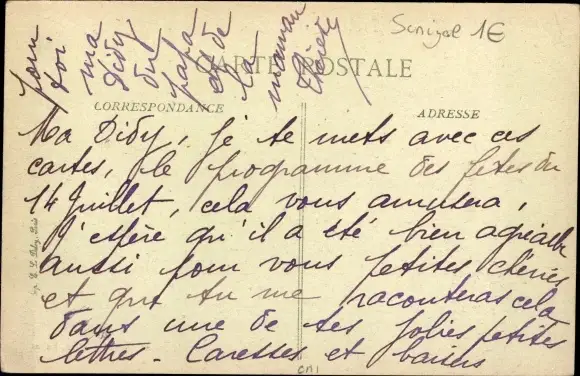 Sénégal 1€
CARTE POSTALE
CORRESPONDANCE
ADRESSE
Ma Didy, je te mets avec ces
cartes, le programme des fêtes du
14 Juillet, cela vous amusera,
J'espère qu'il a été bien agréable
aussi pour vous petites chéries
et que tu me raconteras cela
dans une de tes jolies petites
lettres - Caresses et baisers
pour
toi
ma
Didy
du
papa
et de
la
maman